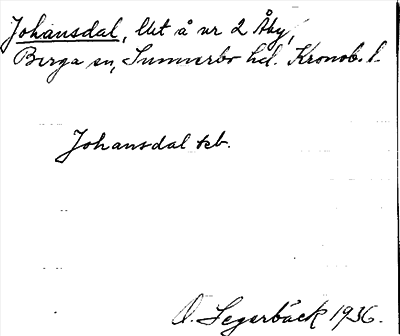 Johansdal, lht å nr 2 Åby,
Berga sn, Sunnerbo hd. Kronob. l.
Johansdal tkb.
O. Segerbäck 1936.